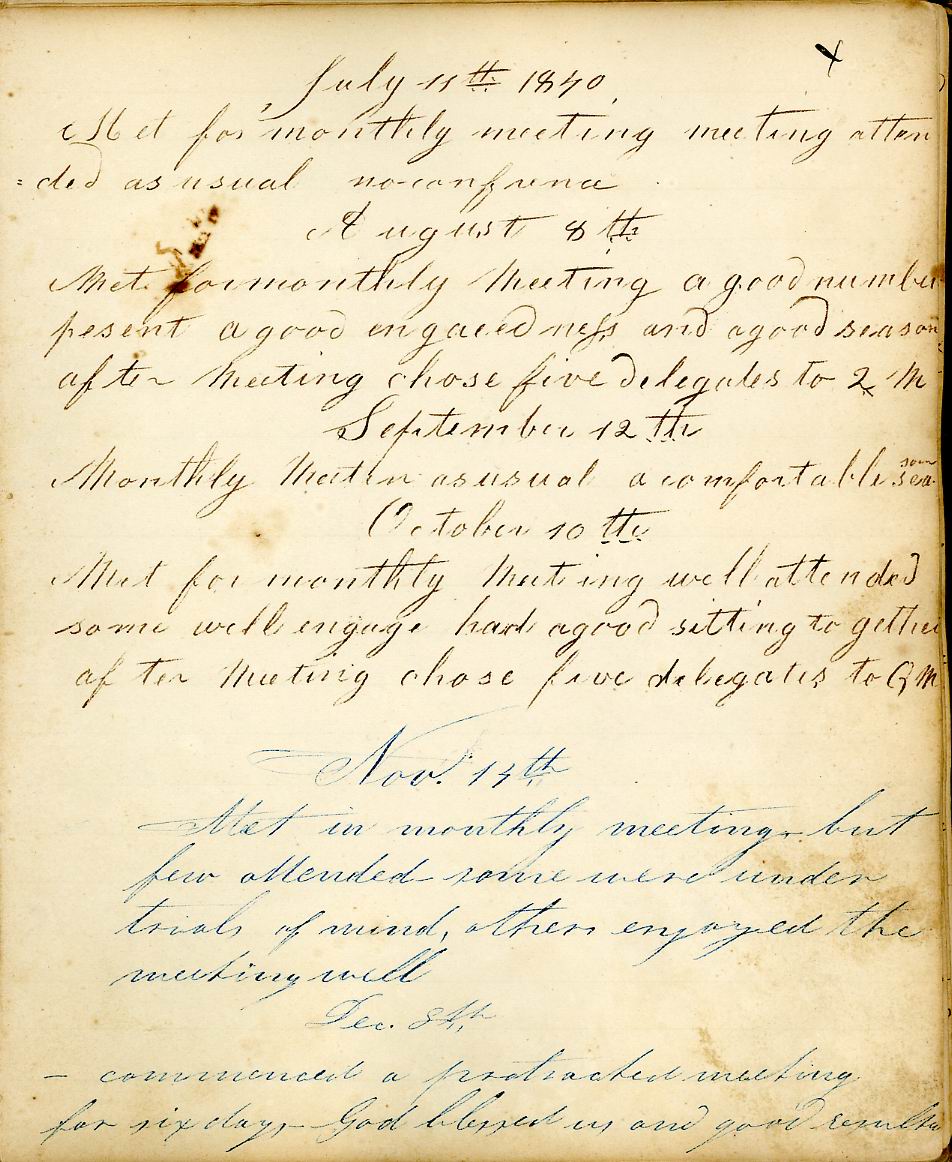 July 11th 1840
Met for monthly meeting meeting atten
=ded as usual no confrence
August 8th
Met for monthly Meeting a good number
pesent a good engaeedness and a good season
after Meeting chose five delegates to 2 M
September 12th
Monthly Meetin as usual a comfortable seasson
October 10th
Met for monthly Meeting well attended
some well engage had a good sitting to gether
after Meeting chose five delegates to Q M
Nov. 14th
Met in monthly meeting - but
few attended some were under
trials of mind, others enjoyed the
meeting well
Dec. 8th,
- commenced a protracted meeting
for six days - God blessed us and good results